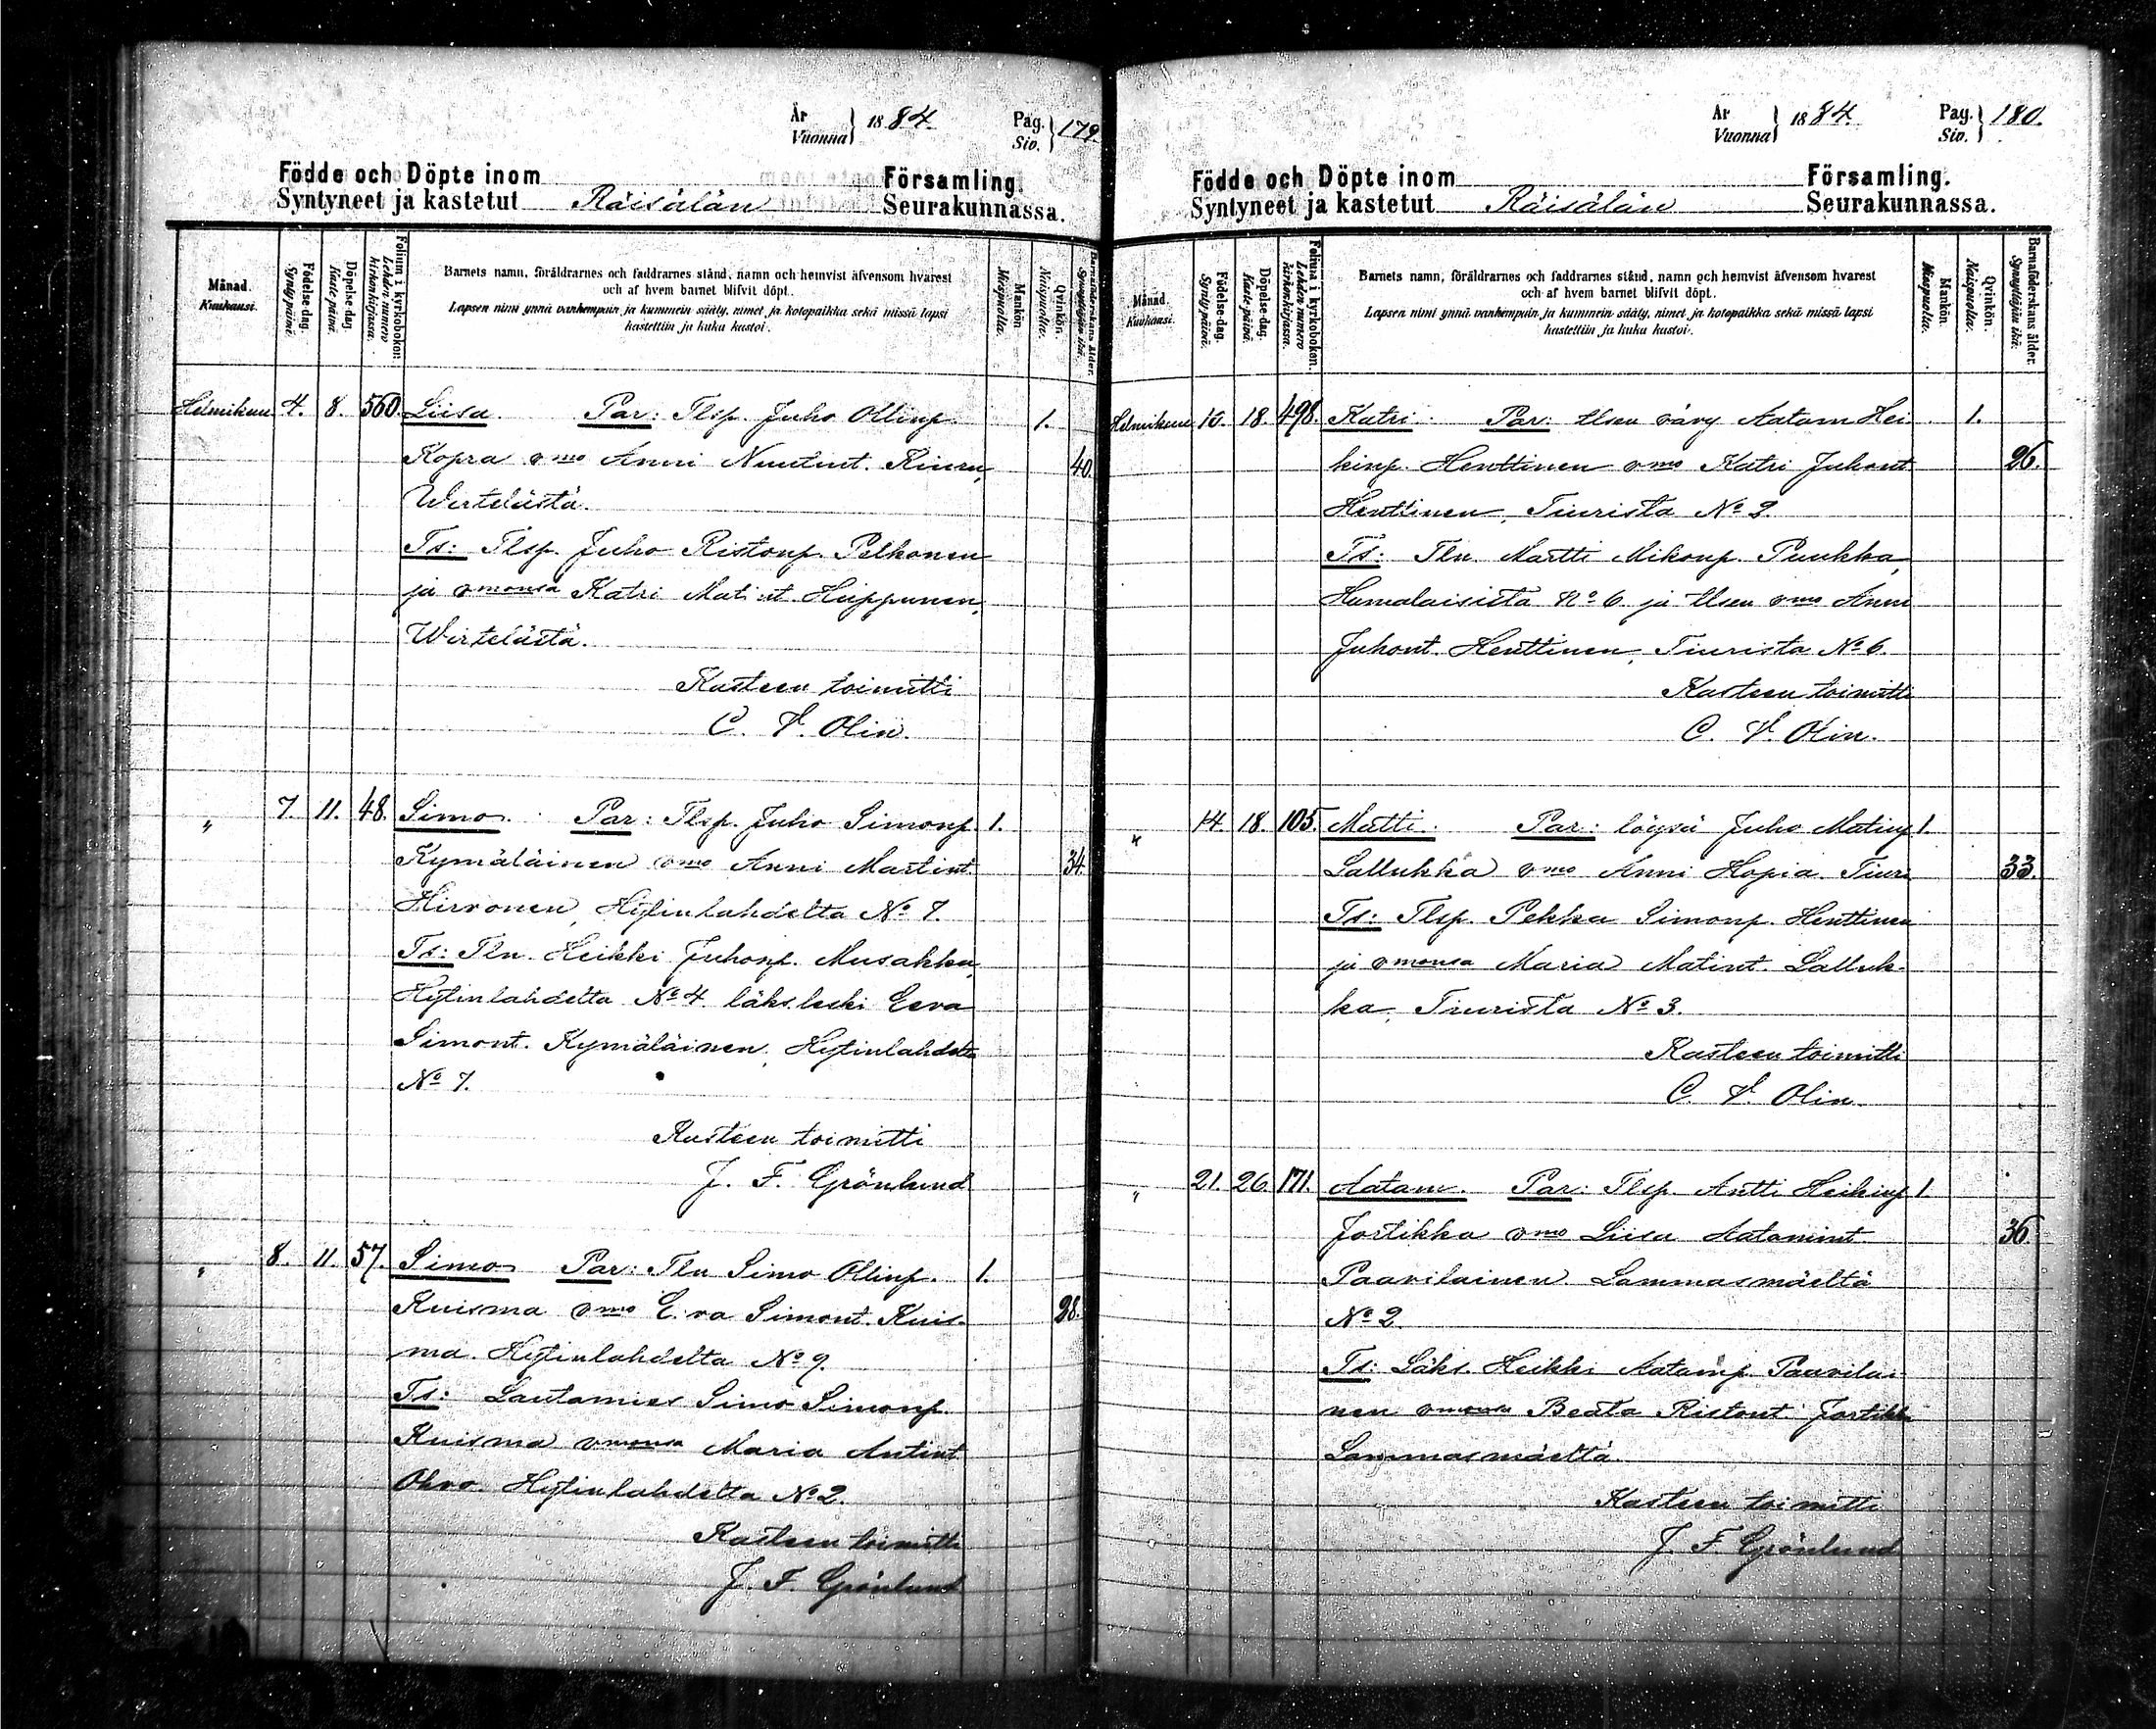 År
Vuonna
1884.
Pag.
Siv.
179.
Födde och Döpte inom
Församling.
Syntyneet ja kastetut Räisälän Seurakunnassa.
Månad.
Kuukausi.
Födelse-dag.
Syntypäivä.
Döpelse-dag.
Kaste-päivä.
Folium i kyrkoboken.
Lehden numero kirkonkirjassa.
Barnets namn, föräldrarnes och faddrarnes stånd, namn och hemvist äfvensom hvarest
och af hvem barnet blifvit döpt.
Lapsen nimi ynnä vanhempain ja kummein sääty, nimet ja kotopaikka sekä missä lapsi
kastettiin ja kuka kastoi.
Mankön.
Miespuolia.
Qvinkön.
Naispuolia.
Barnaföderskans ålder.
Synnyttäjän ikä.
Helmikuu 4. 8. 560. Liisa. Par: Tlsp. Juho Ollinp. 1.
Kopra vmo Anni Nuutint. Kiuru, 40.
Wirtelästä.
Ts: Tlsp. Juho Ristonp. Pelkonen
ja vmonsa Katri Matint. Huppunen,
Wirtelästä.
Kasteen toimitti
C. V. Olin.
" 7. 11. 48. Simo. Par: Tlsp. Juho Simonp. 1.
Kymäläinen vmo Anni Martint. 34.
Hirvonen, Hytinlahdelta No 7.
Ts: Tln. Heikki Juhonp. Musakka,
Hytinlahdelta No 4. läks. leski Eeva
Simont. Kymäläinen, Hytinlahdelta
No 7.
Kasteen toimitti
J. F. Grönlund
" 8. 11. 57. Simo Par: Tln Simo Ollinp. 1.
Kuisma vmo Eva Simont. Kuis- 28.
ma. Hytinlahdelta No 9.
Ts: Lautamies Simo Simonp.
Kuisma vmonsa Maria Antint
Ohvo. Hytinlahdelta No 2.
Kasteen toimitti
J. F. Grönlund
År
Vuonna
1884.
Pag.
Siv.
180.
Födde och Döpte inom
Församling.
Syntyneet ja kastetut Räisälän Seurakunnassa.
Månad.
Kuukausi.
Födelse-dag.
Syntypäivä.
Döpelse-dag.
Kaste-päivä.
Folium i kyrkoboken.
Lehden numero kirkonkirjassa.
Barnets namn, föräldrarnes och faddrarnes stånd, namn och hemvist äfvensom hvarest
och af hvem barnet blifvit döpt.
Lapsen nimi ynnä vanhempain ja kummein sääty, nimet ja kotopaikka sekä missä lapsi
kastettiin ja kuka kastoi.
Mankön.
Miespuolia.
Qvinkön.
Naispuolia.
Barnaföderskans ålder.
Synnyttäjän ikä.
Helmikuu 10. 18. 498. Katri. Par: tlsen vävy Aatam Hei- 1.
kinp. Henttinen vmo Katri Juhont 26.
Henttinen, Tiurista No 2.
Ts: Tln. Martti Mikonp. Puukka,
Humalaisista No 6. ja tlsen vmo Anni
Juhont. Henttinen, Tiurista No 6.
Kasteen toimitti
C. V. Olin.
" 14. 18. 105. Matti. Par: löysä Juho Matinp 1.
Lallukka vmo Anni Hopia. Tiuri 33.
Ts: Tlsp. Pekka Simonp. Henttinen
ja vmonsa Maria Matint. Lalluk-
ka, Tiurista No 3.
Kasteen toimitti
C. V. Olin.
" 21. 26. 171. Aatam. Par: Tlsp. Antti Heikinp 1.
Jortikka vmo Liisa Aatamint. 36.
Paavilainen Lammasmäeltä
No 2.
Ts: Läks. Heikki Aatamp. Paavilai-
nen vmonsa Beata Ristont. Jortikka
Lammasmäeltä.
Kasteen toimitti
J. F. Grönlund